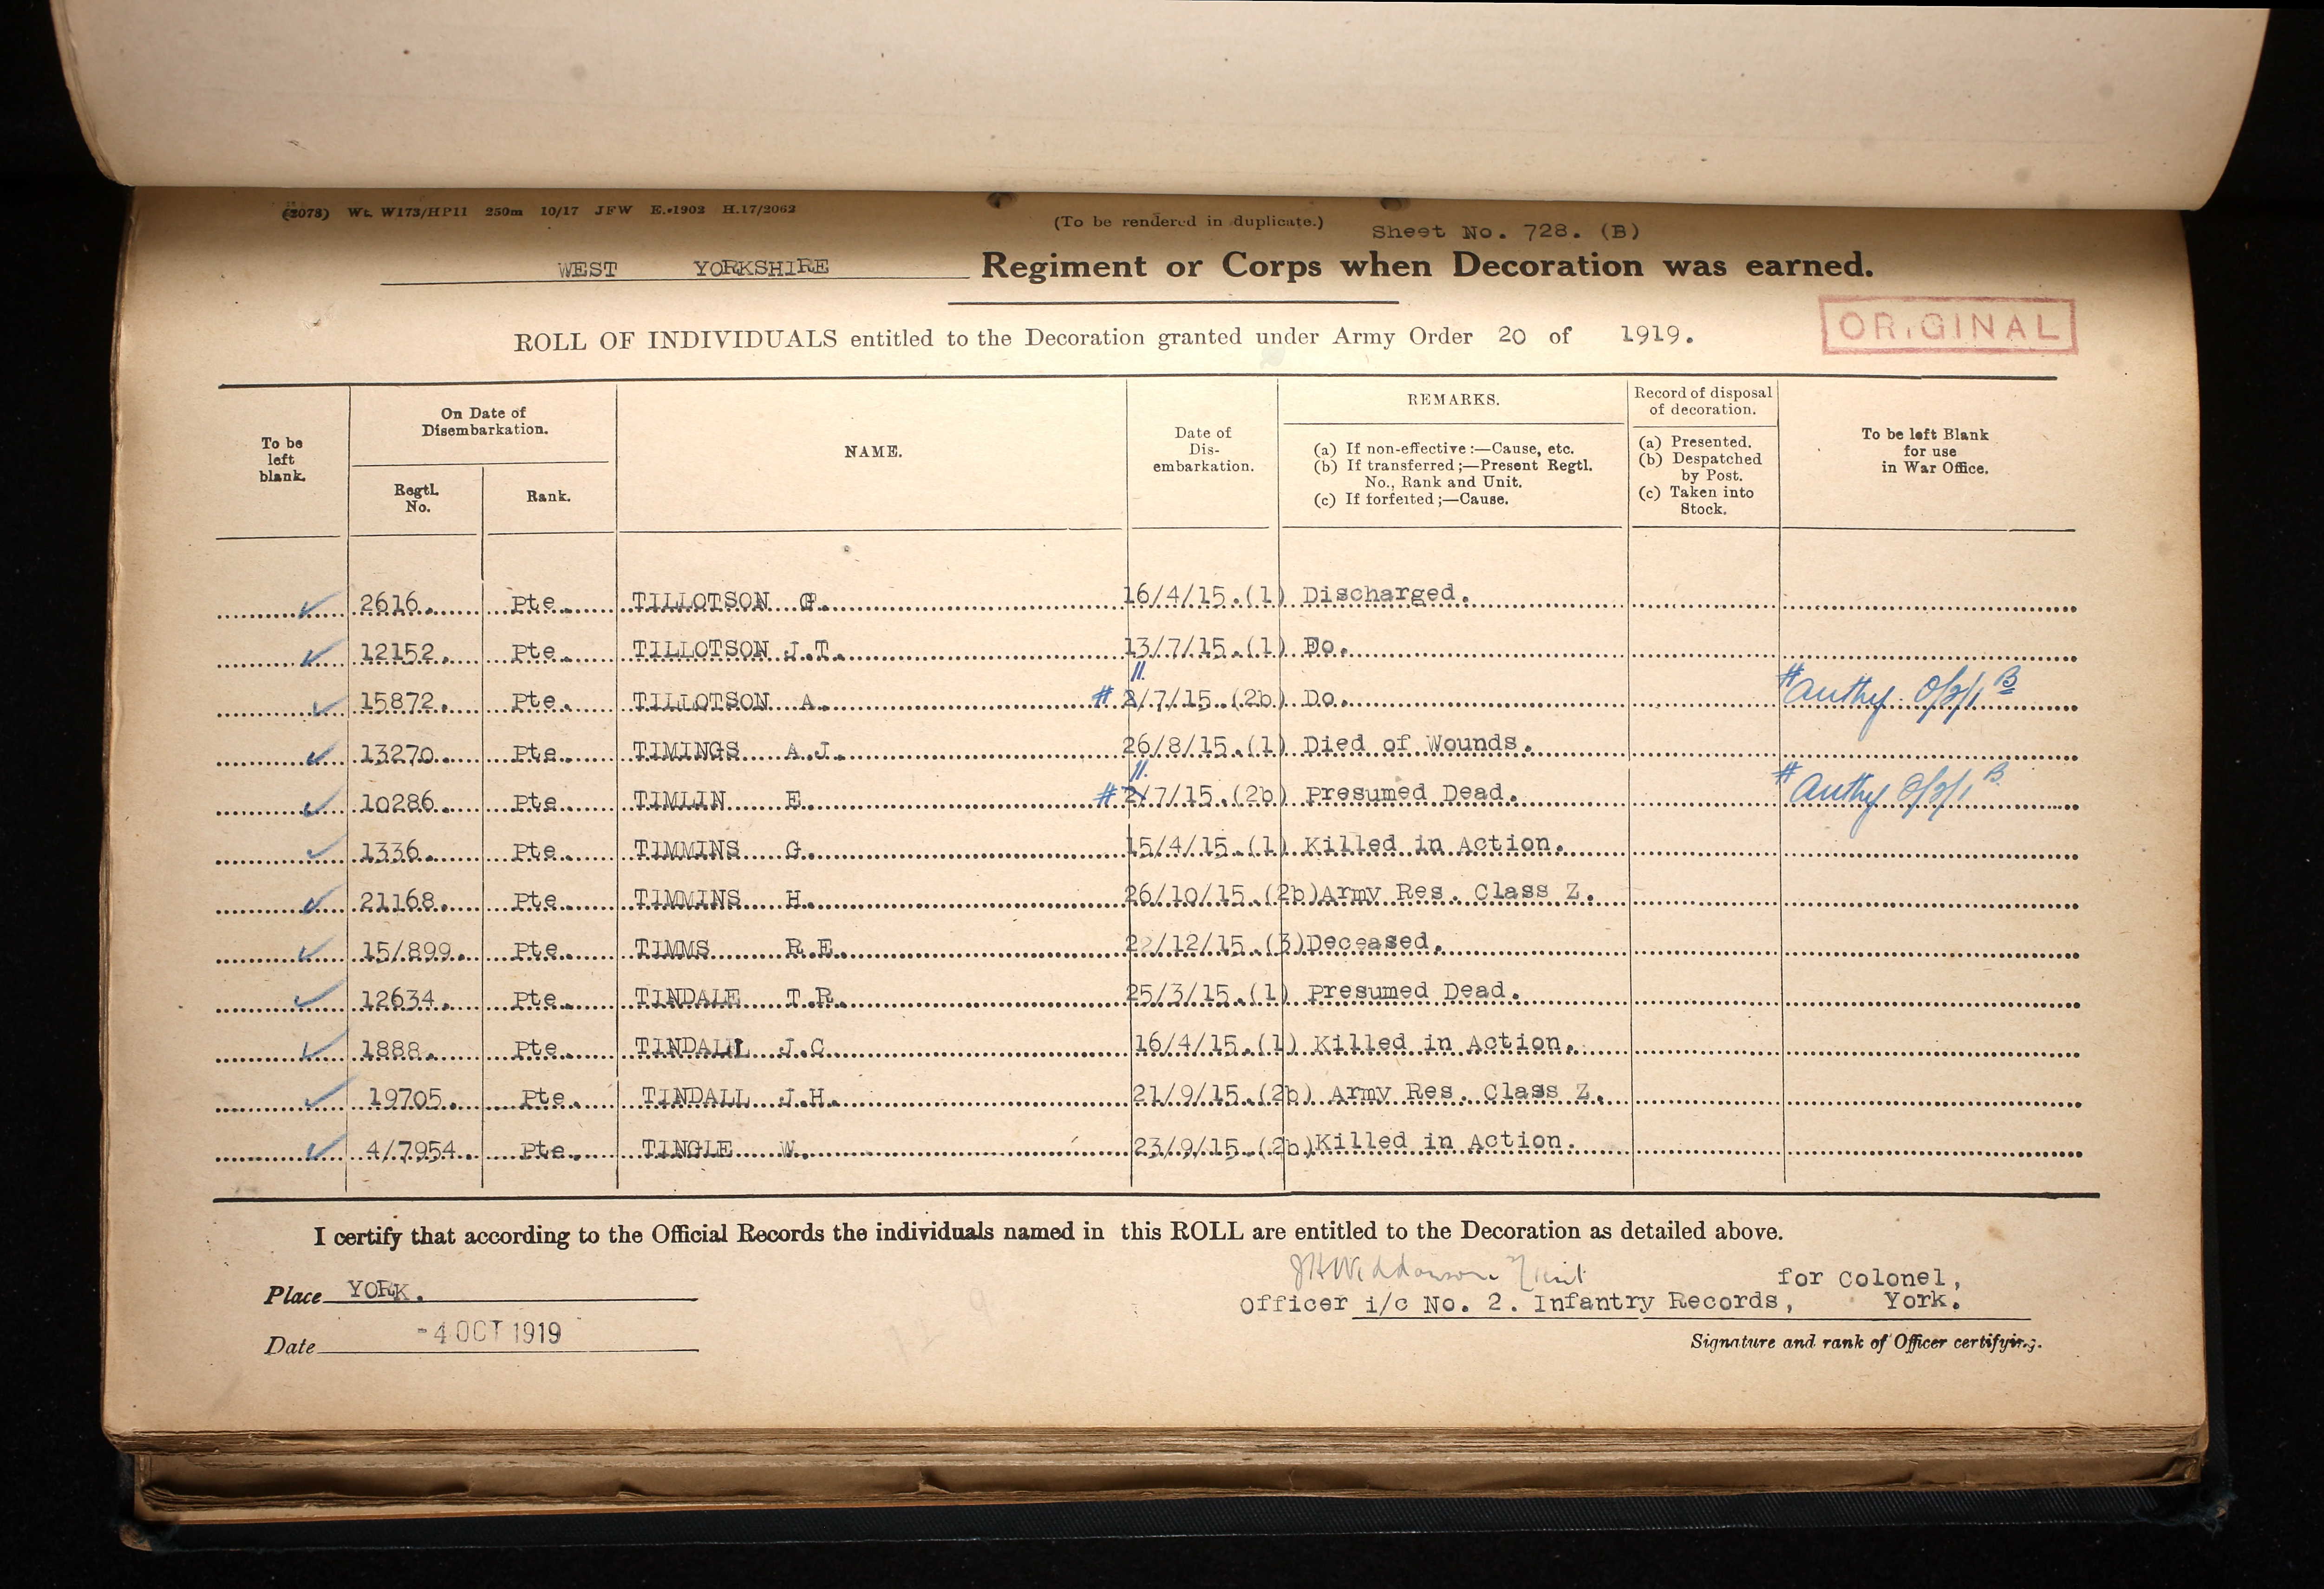 (2078) Wt. W173/HP11 250m 10/17 JFW E.1902 H.17/2062
(To be rendered in duplicate.)
Sheet No. 728. (B)
WEST YORKSHIRE Regiment or Corps when Decoration was earned.
ROLL OF INDIVIDUALS entitled to the Decoration granted under Army Order 20 of 1919.
ORIGINAL
To be left blank.
On Date of Disembarkation.
Regtl. No.
Rank.
NAME.
Date of Dis-embarkation.
REMARKS.
(a) If non-effective :—Cause, etc.
(b) If transferred ;—Present Regtl. No., Rank and Unit.
(c) If forfeited ;—Cause.
Record of disposal of decoration.
(a) Presented.
(b) Despatched by Post.
(c) Taken into Stock.
To be left Blank for use in War Office.
2616. Pte. TILLOTSON G. 16/4/15.(1) Discharged.
12152. Pte. TILLOTSON J.T. 13/7/15.(1) Do.
11.
15872. Pte. TILLOTSON A. # 2/7/15.(2b) Do. # Authy O/2/1 B
13270. Pte. TIMINGS A.J. 26/8/15.(1) Died of Wounds.
11.
10286. Pte. TIMLIN E. # 2/7/15.(2b) Presumed Dead. # Authy O/2/1 B
1336. Pte. TIMMINS G. 15/4/15.(1) Killed in Action.
21168. Pte. TIMMINS H. 26/10/15.(2b)Army Res. Class Z.
15/899. Pte. TIMMS R.E. 22/12/15.(3)Deceased.
12634. Pte. TINDALE T.R. 25/3/15.(1) Presumed Dead.
1888. Pte. TINDALL J.C. 16/4/15.(1) Killed in Action.
19705. Pte. TINDALL J.H. 21/9/15.(2b) Army Res. Class Z.
4/7954. Pte. TINGLE W. 23/9/15.(2b)Killed in Action.
I certify that according to the Official Records the individuals named in this ROLL are entitled to the Decoration as detailed above.
Place YORK.
for Colonel,
Officer i/c No. 2. Infantry Records, York.
Date -4 OCT 1919
Signature and rank of Officer certifying.